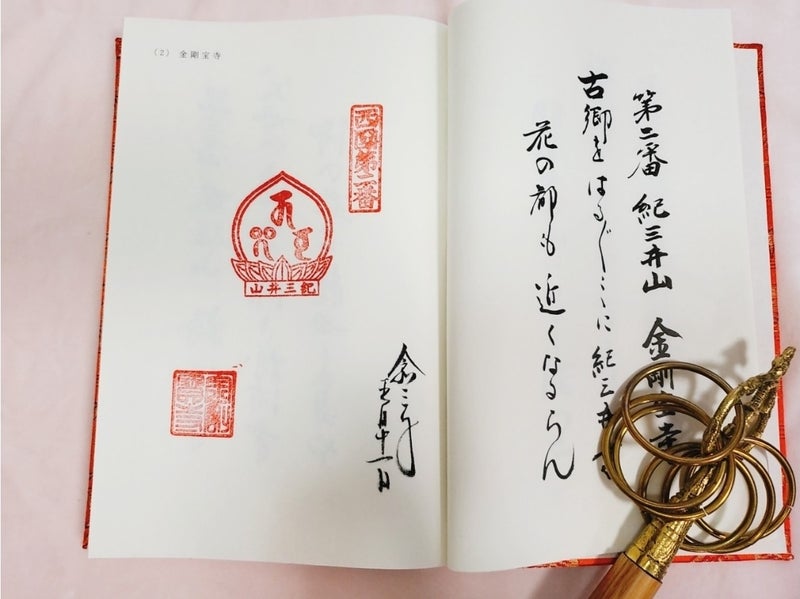 第二番 紀三井山 金剛 寺
古郷をはる〴〵こゝに 紀三井
花の都も 近くなるらん
（2） 金剛宝寺
西国第二番
紀三井山
令三年
五月十一日